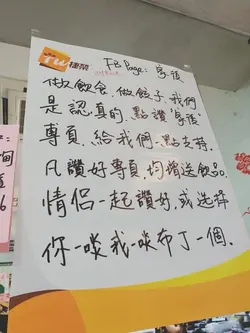 樓榮 FB Page：家後
做飲食，做餃子，我們
是認真的，點讚'家後'
專頁，給我們一點支持。
凡讚好專頁，均增送飲品，
情侶一起讚好，或选择
你一啖我一啖布丁一個．